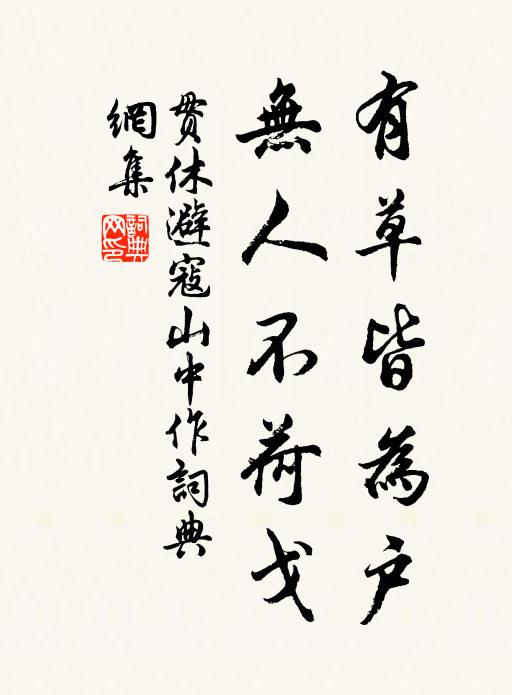 有草皆為户
無人不荷戈
貫休避寇山中作詞典
網集
詞典
网印